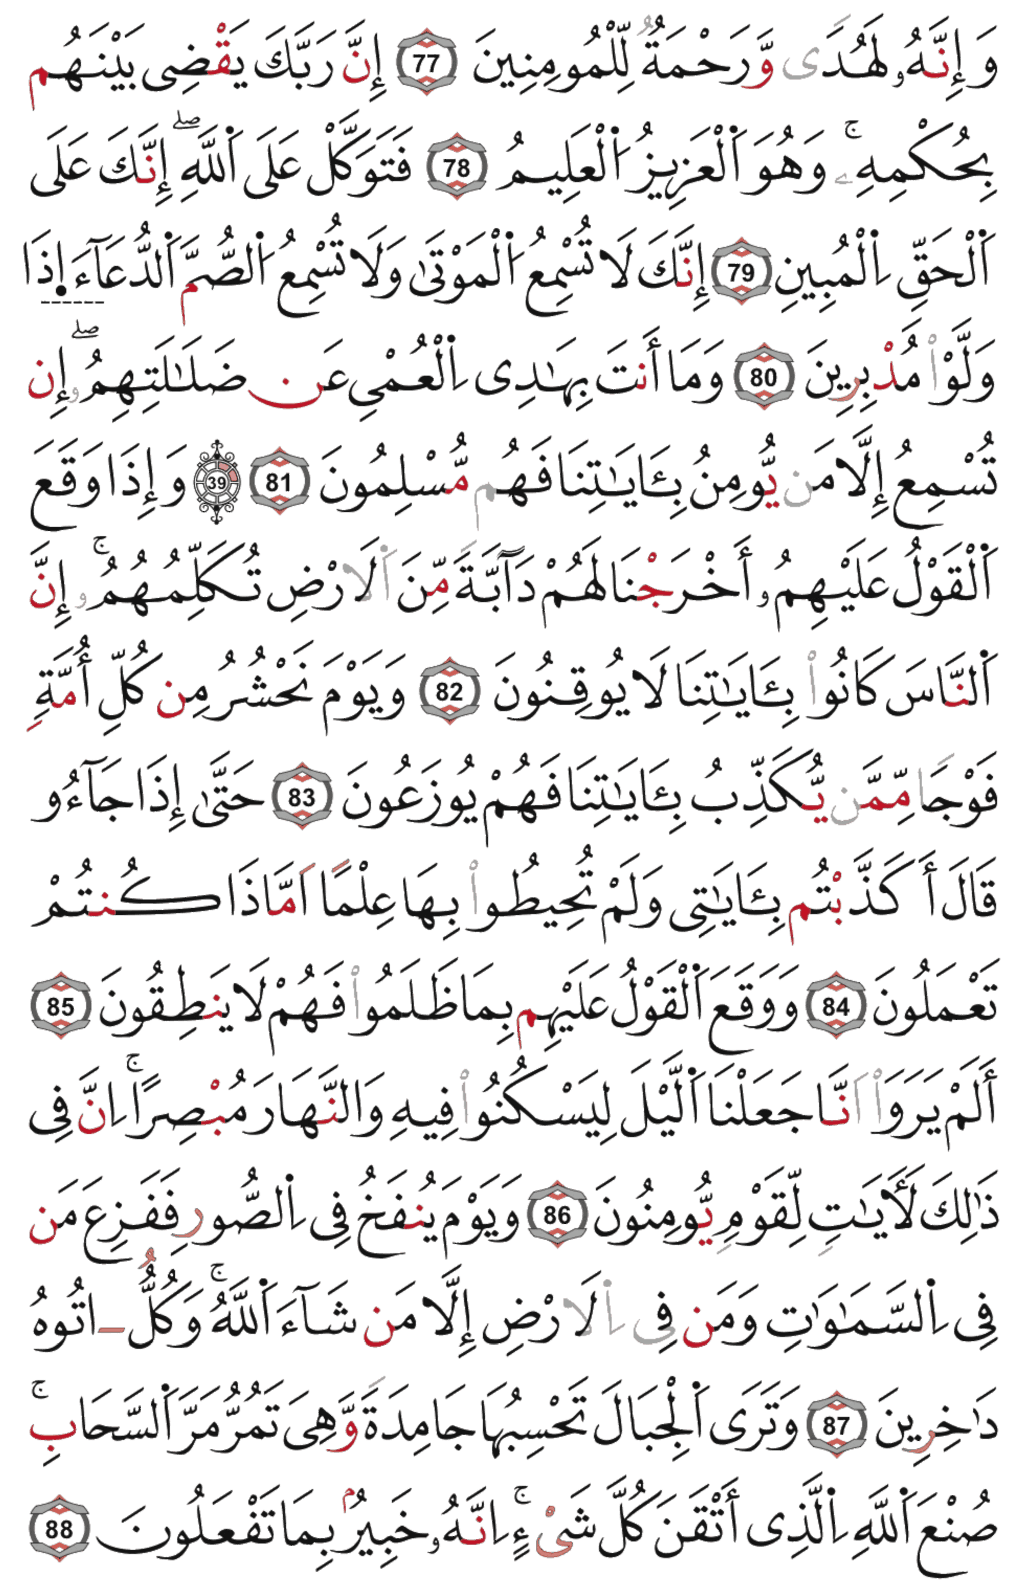 وَإِنَّهُۥ لَهُدًى وَّرَحْمَةٌ لِّلْمُومِنِينَ 77 إِنَّ رَبَّكَ يَقْضِى بَيْنَهُم
بِحُكْمِهِۦ ۚ وَهُوَ اَ۬لْعَزِيزُ اُ۬لْعَلِيمُ 78 فَتَوَكَّلْ عَلَى اَ۬للَّهِ ۖ إِنَّكَ عَلَى
اَ۬لْحَقِّ اِ۬لْمُبِينِ 79 إِنَّكَ لَا تُسْمِعُ اُ۬لْمَوْتَىٰ وَلَا تُسْمِعُ اُ۬لصُّمَّ اَ۬لدُّعَآءَ اِ۪ذَا
وَلَّوْا۟ مُدْبِرِينَ 80 وَمَا أَنتَ بِهَٰدِى اِ۬لْعُمْيِ عَن ضَلَٰلَتِهِمُۥ ۖ إِن
تُسْمِعُ إِلَّا مَن يُّومِنُ بِـَٔايَٰتِنَا فَهُم مُّسْلِمُونَ 81 39 وَإِذَا وَقَعَ
اَ۬لْقَوْلُ عَلَيْهِمُۥ أَخْرَجْنَا لَهُمْ دَآبَّةً مِّنَ اَ۬لَارْضِ تُكَلِّمُهُمُۥ ۚ إِنَّ
اَ۬لنَّاسَ كَانُوا۟ بِـَٔايَٰتِنَا لَا يُوقِنُونَ 82 وَيَوْمَ نَحْشُرُ مِن كُلِّ أُمَّةٍ
فَوْجًا مِّمَّن يُّكَذِّبُ بِـَٔايَٰتِنَا فَهُمْ يُوزَعُونَ 83 حَتَّىٰ إِذَا جَآءُو
قَالَ أَكَذَّبْتُم بِـَٔايَٰتِى وَلَمْ تُحِيطُوا۟ بِهَا عِلْمًا اَمَّاذَا كُنتُمْ
تَعْمَلُونَ 84 وَوَقَعَ اَ۬لْقَوْلُ عَلَيْهِم بِمَا ظَلَمُوا۟ فَهُمْ لَا يَنطِقُونَ 85
أَلَمْ يَرَوَا۟ اَنَّا جَعَلْنَا اَ۬لَّيْلَ لِيَسْكُنُوا۟ فِيهِ وَالنَّهَارَ مُبْصِرًا ۚ اِنَّ فِى
ذَٰلِكَ لَأَيَٰتٍ لِّقَوْمٍ يُّومِنُونَ 86 وَيَوْمَ يُنفَخُ فِى اِ۬لصُّورِ فَفَزِعَ مَن
فِى اِ۬لسَّمَٰوَٰتِ وَمَن فِى اِ۬لَارْضِ إِلَّا مَن شَآءَ اَ۬للَّهُ ۚ وَكُلٌّ اتُوهُ
دَٰخِرِينَ 87 وَتَرَى اَ۬لْجِبَالَ تَحْسِبُهَا جَامِدَةً وَّهِىَ تَمُرُّ مَرَّ اَ۬لسَّحَابِ ۚ
صُنْعَ اَ۬للَّهِ اِ۬لَّذِى أَتْقَنَ كُلَّ شَىْءٍ ۚ اِنَّهُۥ خَبِيرٌۢ بِمَا تَفْعَلُونَ 88